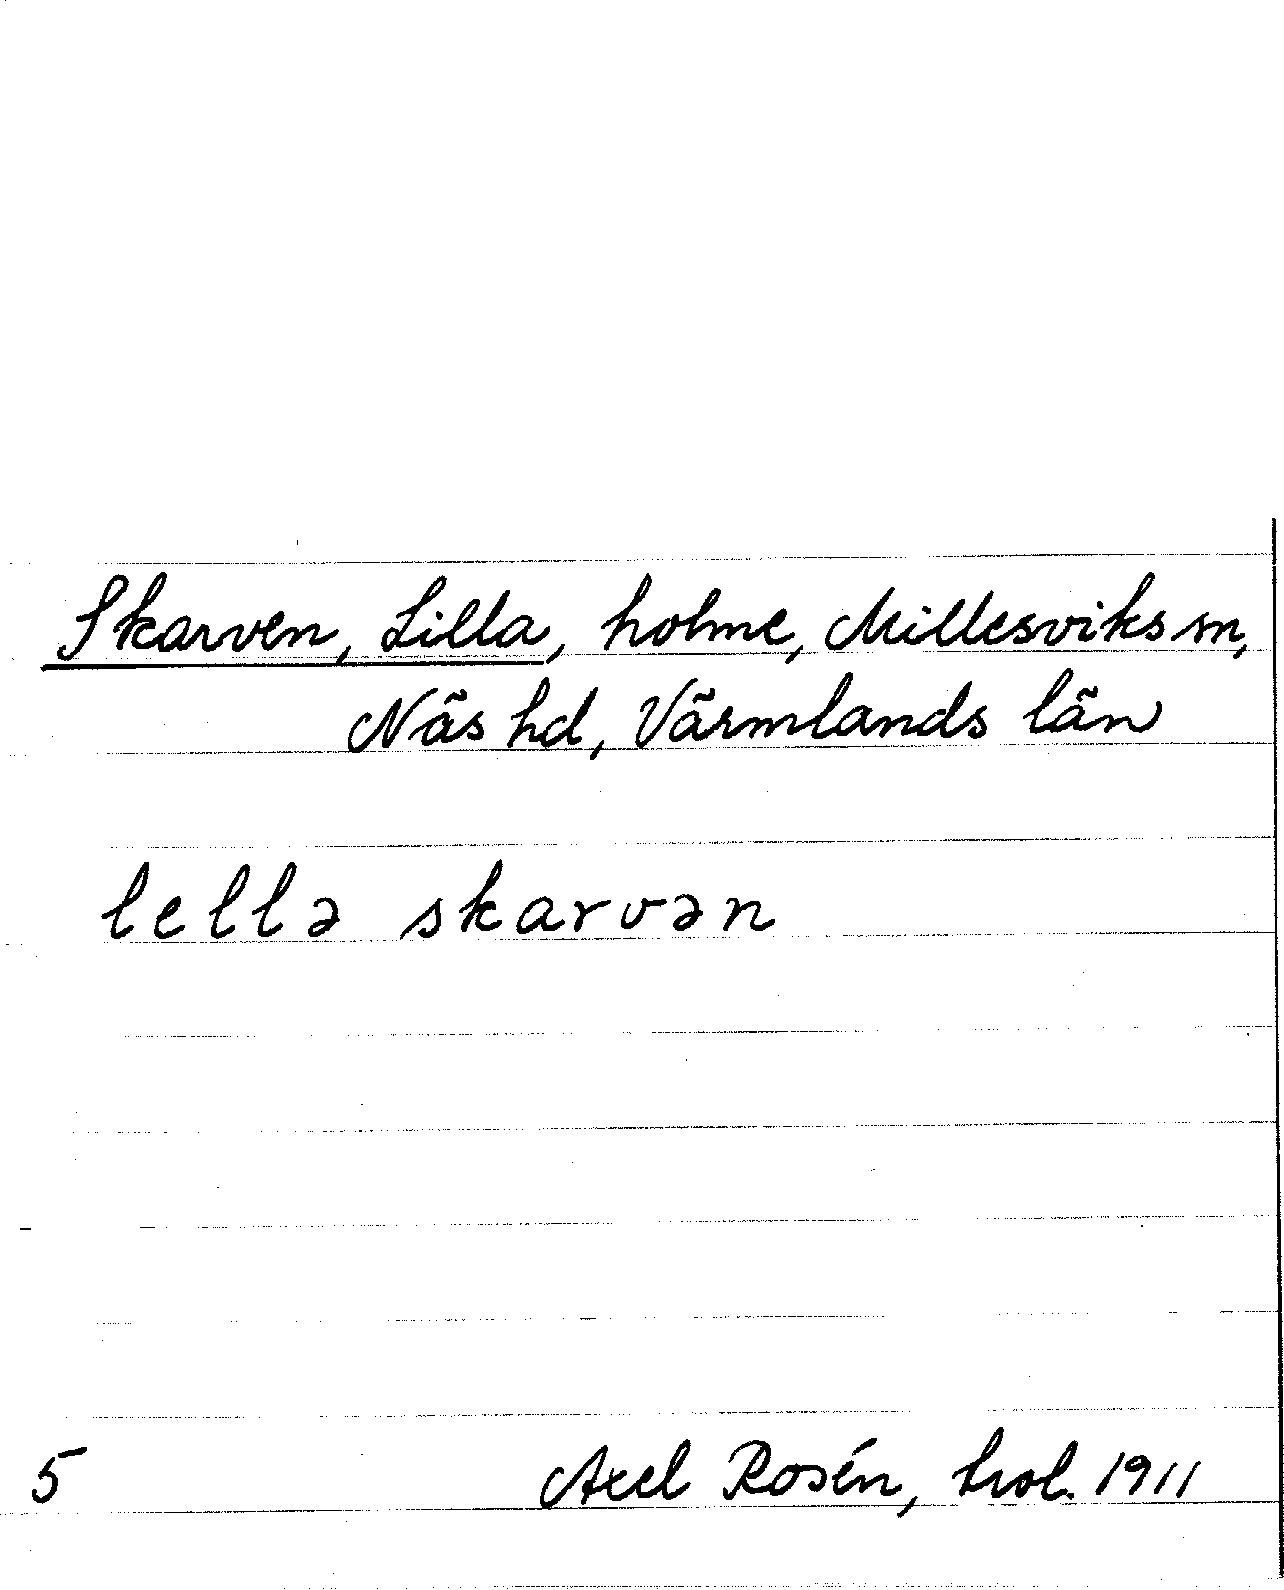 Skarven, Lilla, holme, Millesviks sn,
Näs hd, Värmlands län
lellə skarvən
5 Axel Rosén, trol. 1911